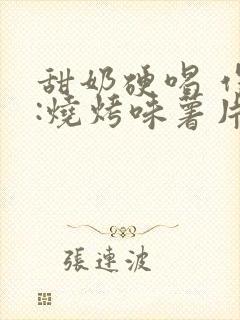 甜奶硬唱
:燒烤味薯片
張連波